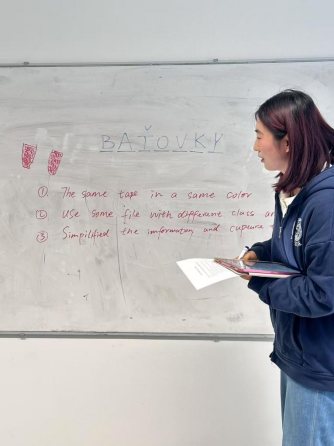 BAŤOVKY
① The same tape in a same color
② Use some file with different class an
③ Simplified the information and